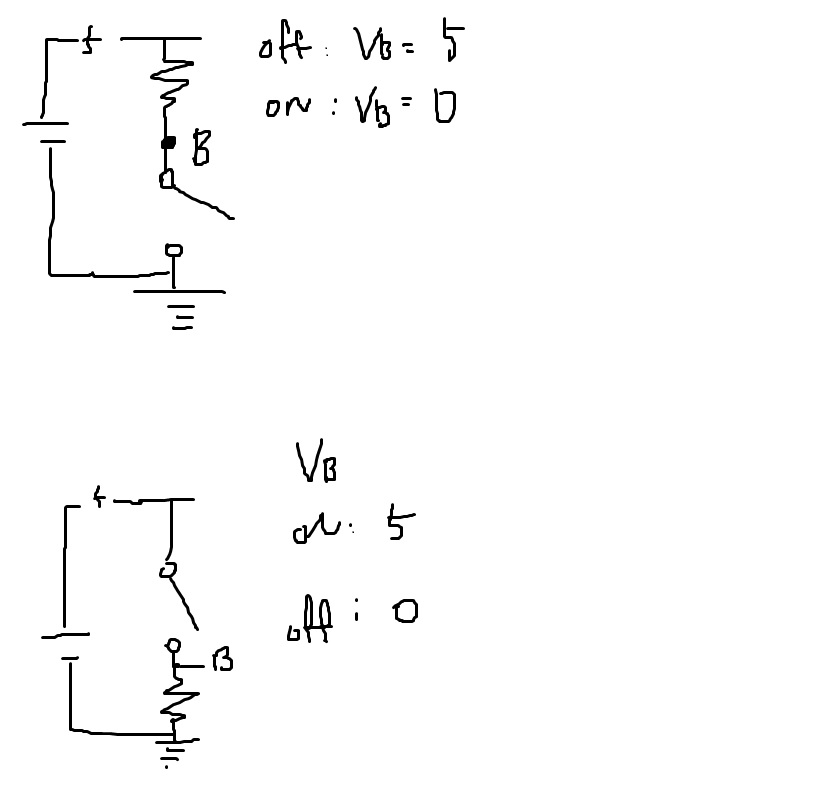 5
off: VB = 5
on: VB = 0
B
VB
5
on: 5
off: 0
B